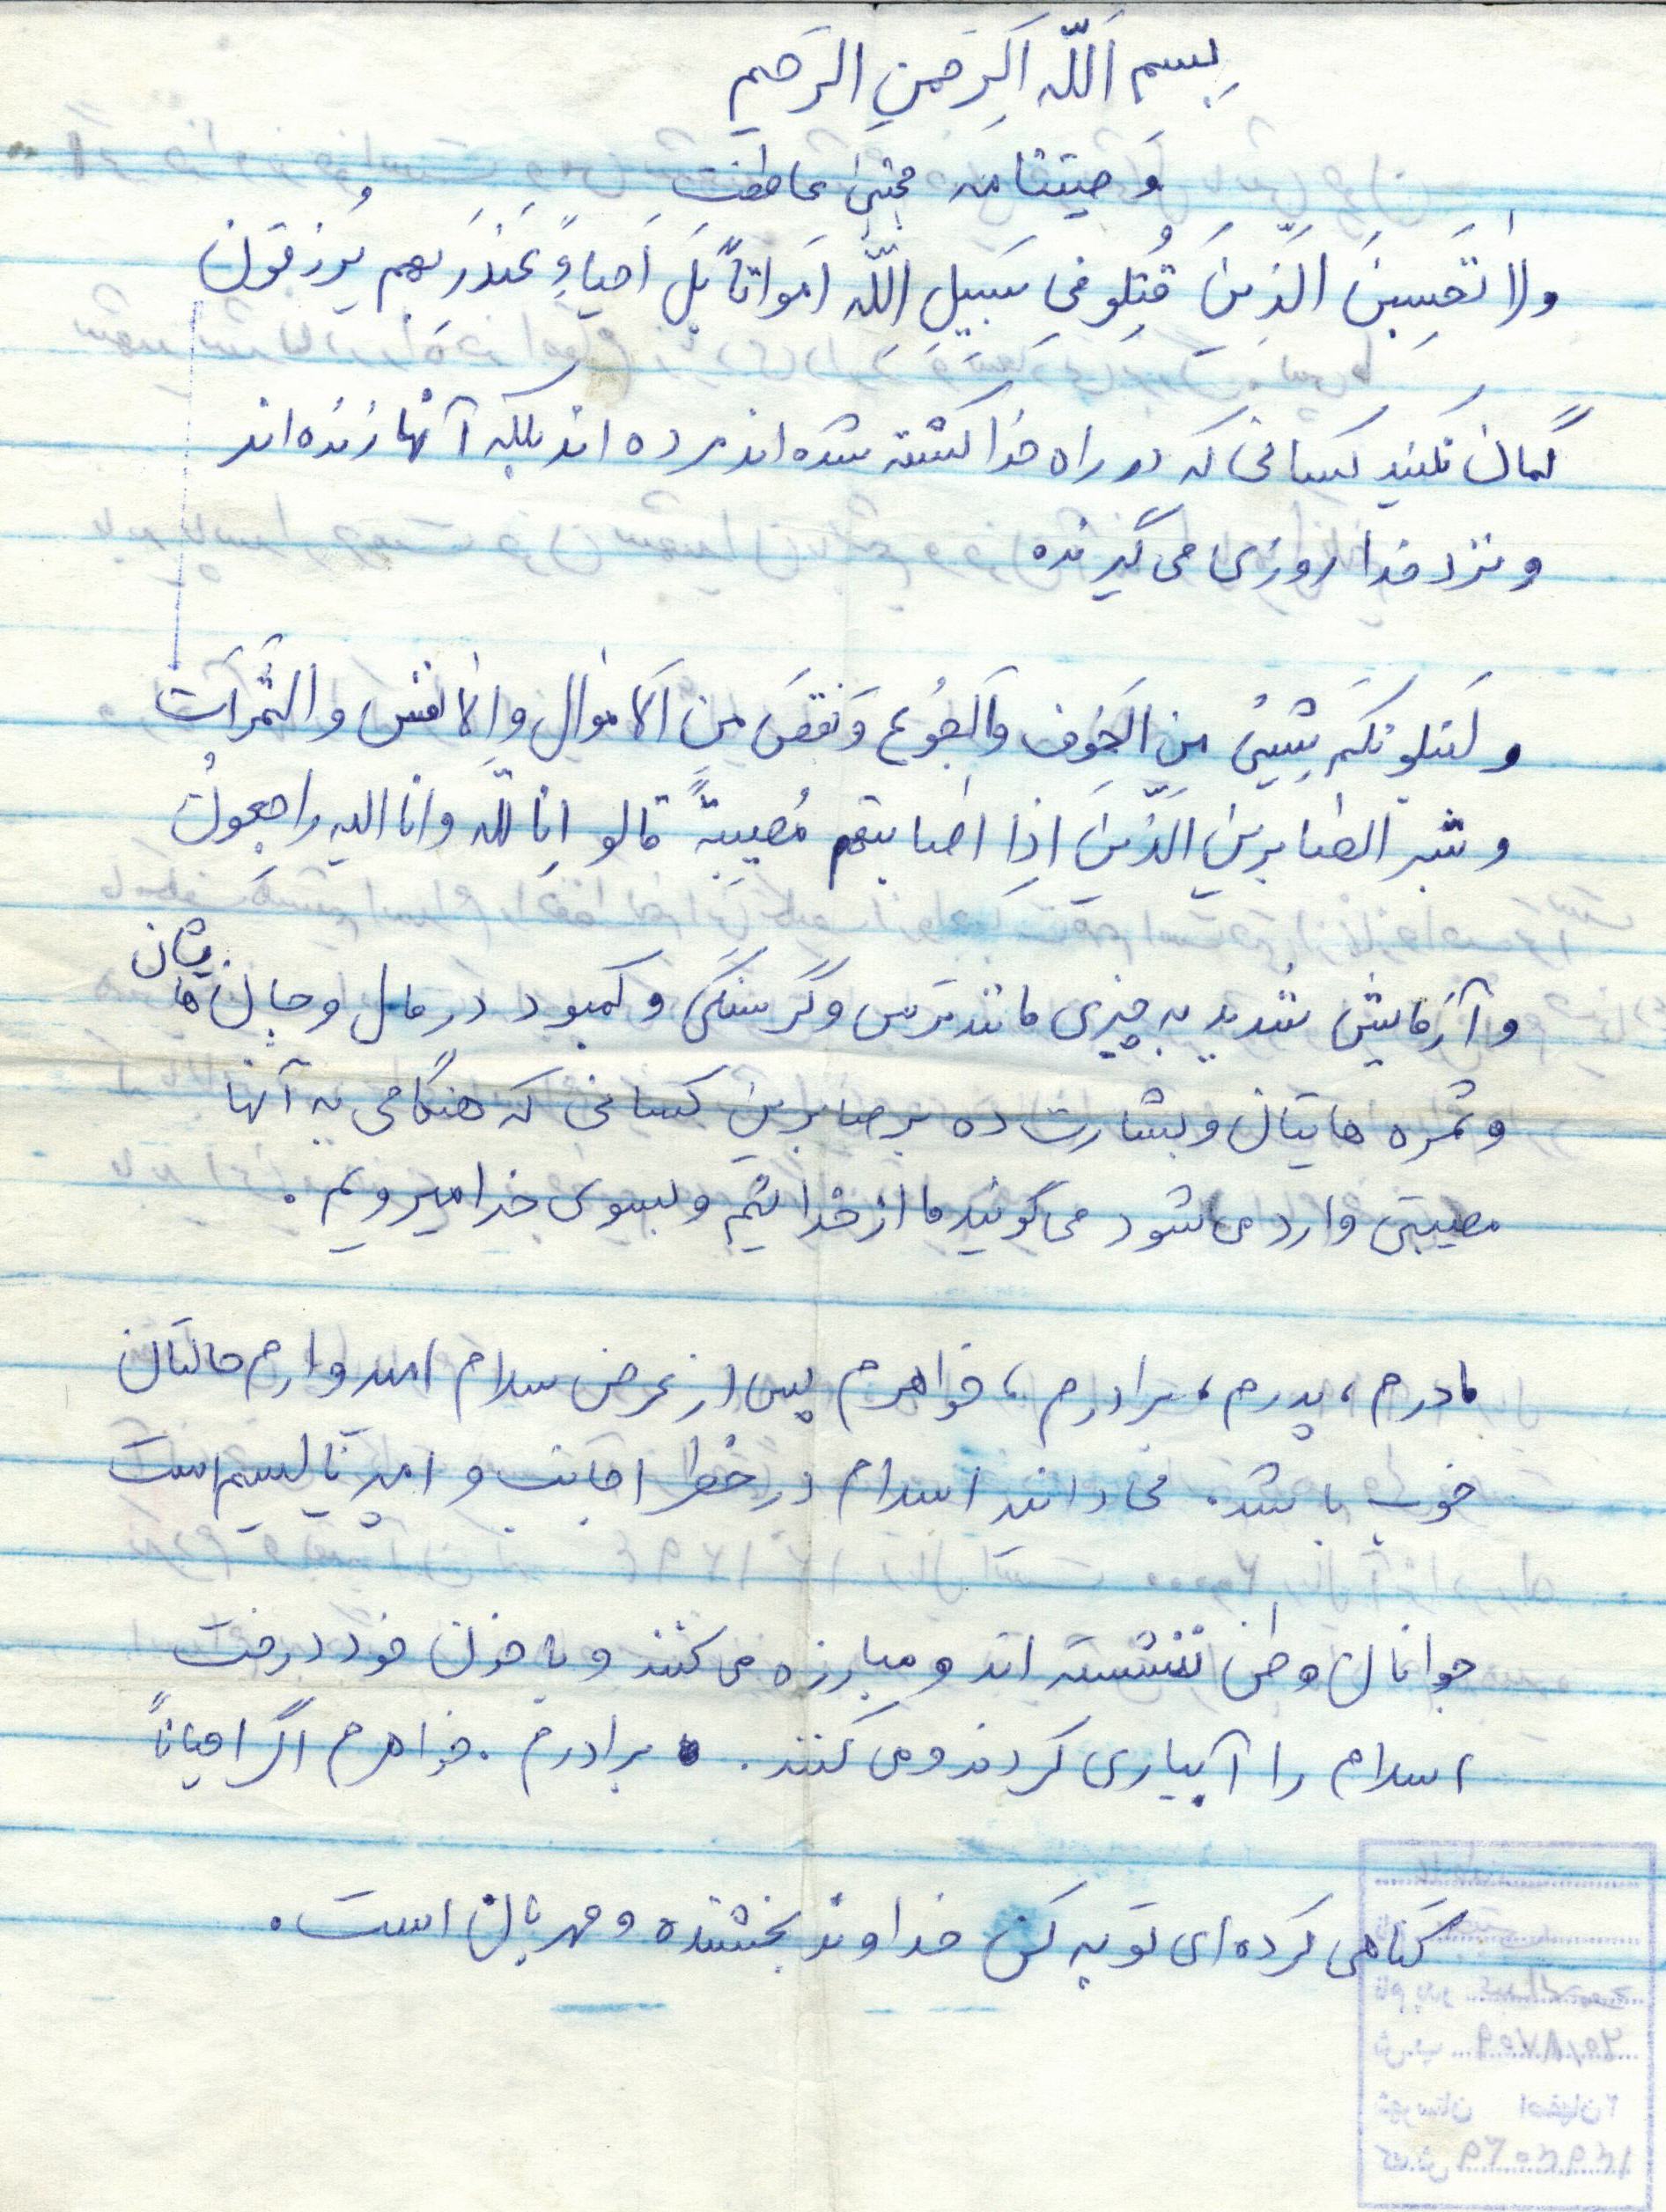 بِسم اَللّه اَلرَحمنِ الرَحیم
وَصیتنامه مجتبی عاطفت
وَلا تَحسِبنَ الَّذینَ قُتِلو فی سَبیلِ اللّه اَمواتاً بَل اَحیاءً عِندَرَبهم یُرزقون
گمان نکنید کسانی که در راه خدا کشته شده اند مرده اند بلکه آنها زنده اند
و نزد خدا روزی می گیرنده
و لَنبلونکم بِشیئ مِن الخَوف والجُوع وَنقص مِن اَلاموال واِلانفس و الثَمَرات
و بشر الصابرین الَّذینَ اِذا اصابتهم مُصیبةً قالو اِنا للّه وانا الیه راجعونُ
و آزمایش شدید به چیزی مانند ترس و گرسنگی و کمبود در مال و جان هایشان
و ثمره هایتان و بشارت ده بر صابرین کسانی که هنگامی به آنها
مصیبتی وارد می شود می گویند ما از خدائیم و بسوی خدا میرویم .
مادرم ، پدرم ، برادرم ، خواهرم پس از عرض سلام امیدوارم حالتان
خوب باشد . می دانید اسلام در خطر اجانب و امپریالیسم است
جوانان وطن ننشسته اند و مبارزه می کنند و با خون خود درخت
اسلام را آبیاری کردند و می کنند . برادرم . خواهرم اگر احیاناً
گناهی کرده ای توبه کن خداوند بخشنده و مهربان است .